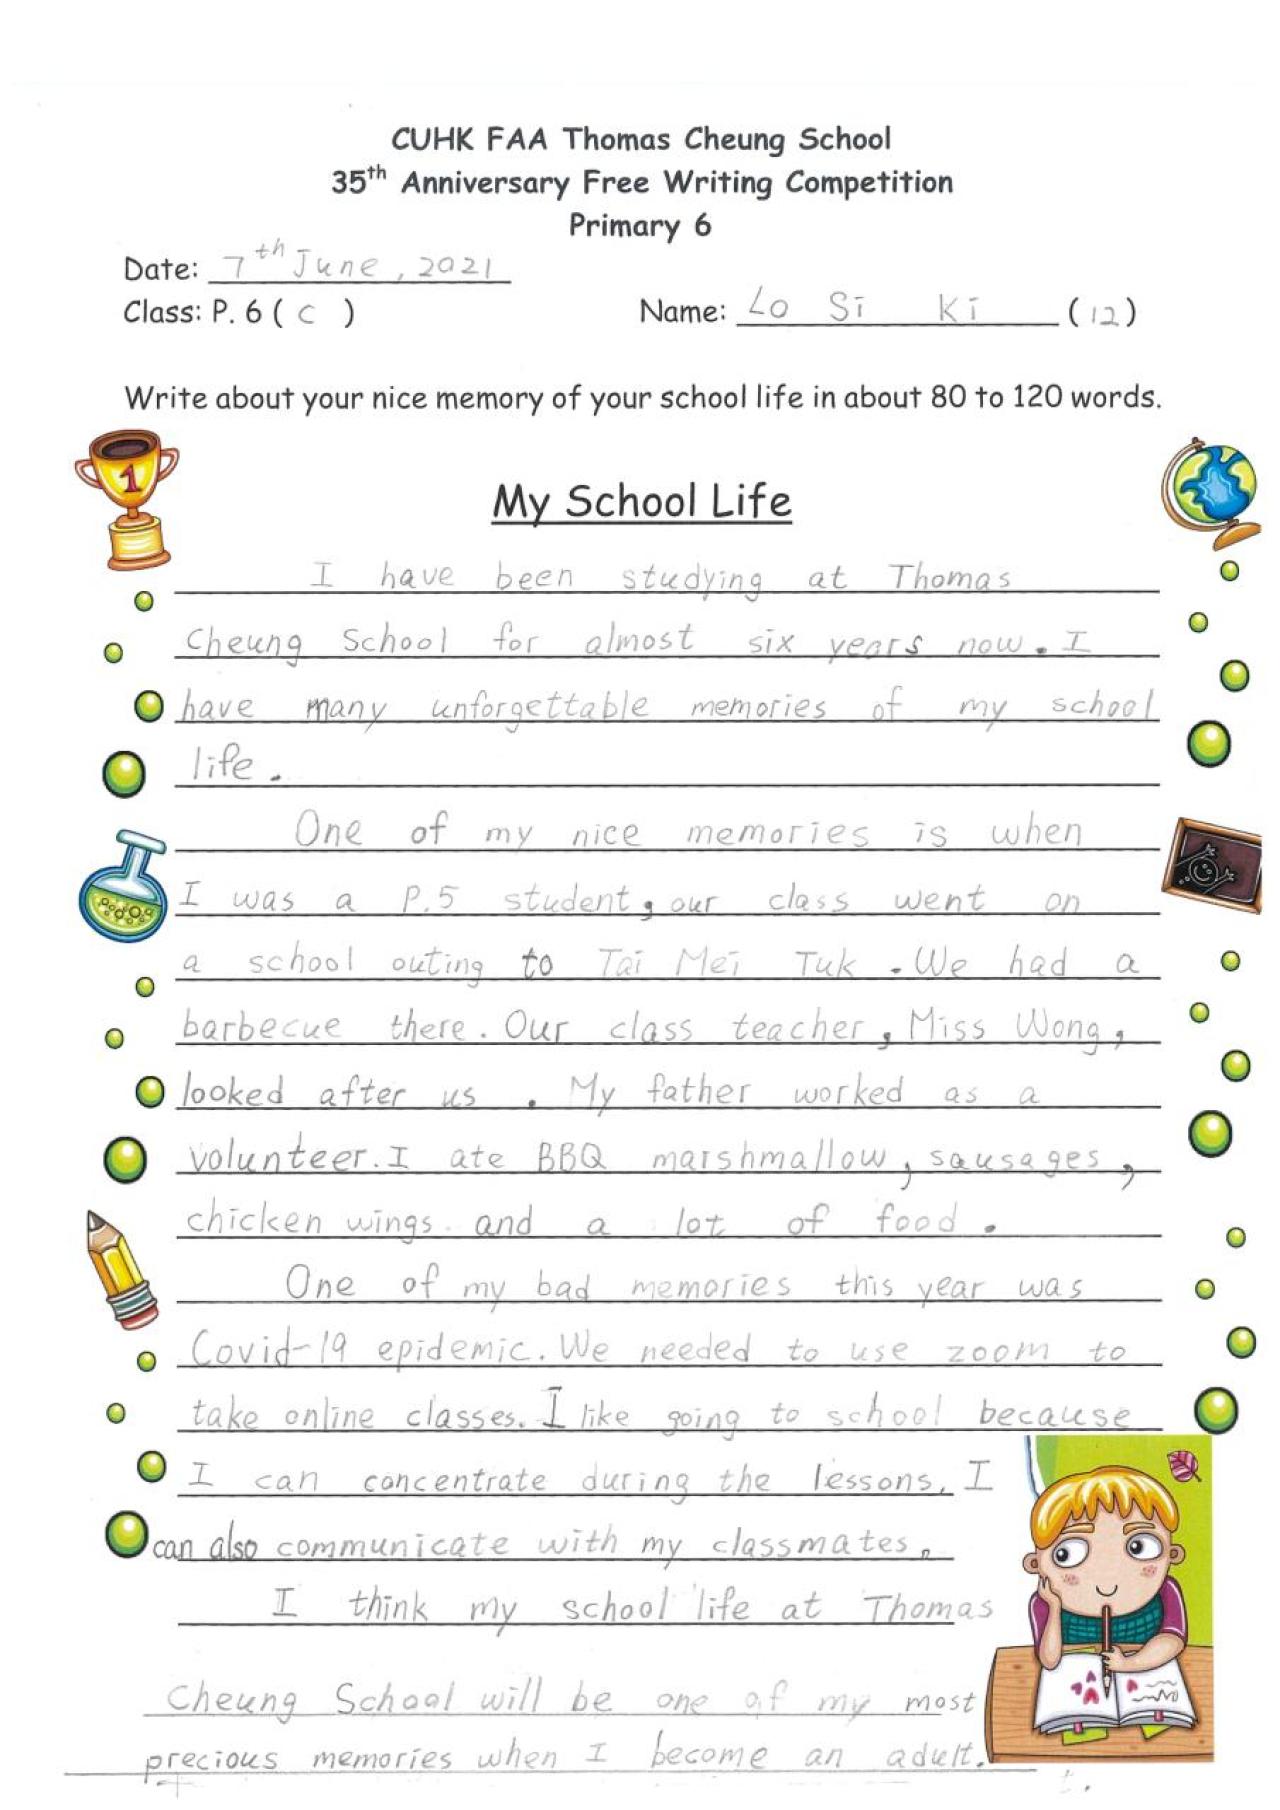 CUHK FAA Thomas Cheung School
35th Anniversary Free Writing Competition
Primary 6
Date: 7th June, 2021
Class: P. 6 ( C )
Name: Lo Si Ki (12)
Write about your nice memory of your school life in about 80 to 120 words.
1
My School Life
I have been studying at Thomas
Cheung School for almost six years now. I
have many unforgettable memories of my school
life.
One of my nice memories is when
I was a P.5 student, our class went on
a school outing to Tai Mei Tuk. We had a
barbecue there. Our class teacher, Miss Wong,
looked after us. My father worked as a
volunteer. I ate BBQ marshmallow, sausages,
chicken wings and a lot of food.
One of my bad memories this year was
Covid-19 epidemic. We needed to use zoom to
take online classes. I like going to school because
I can concentrate during the lessons. I
can also communicate with my classmates.
I think my school life at Thomas
Cheung School will be one of my most
precious memories when I become an adult.